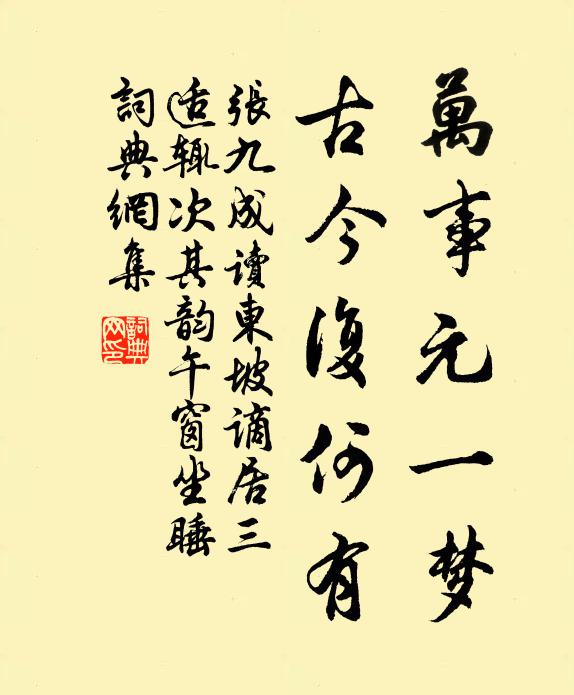 萬事元一梦
古今復何有
張九成讀東坡謫居三
适輒次其韵午窗坐睡
詞典網集
詞典网印